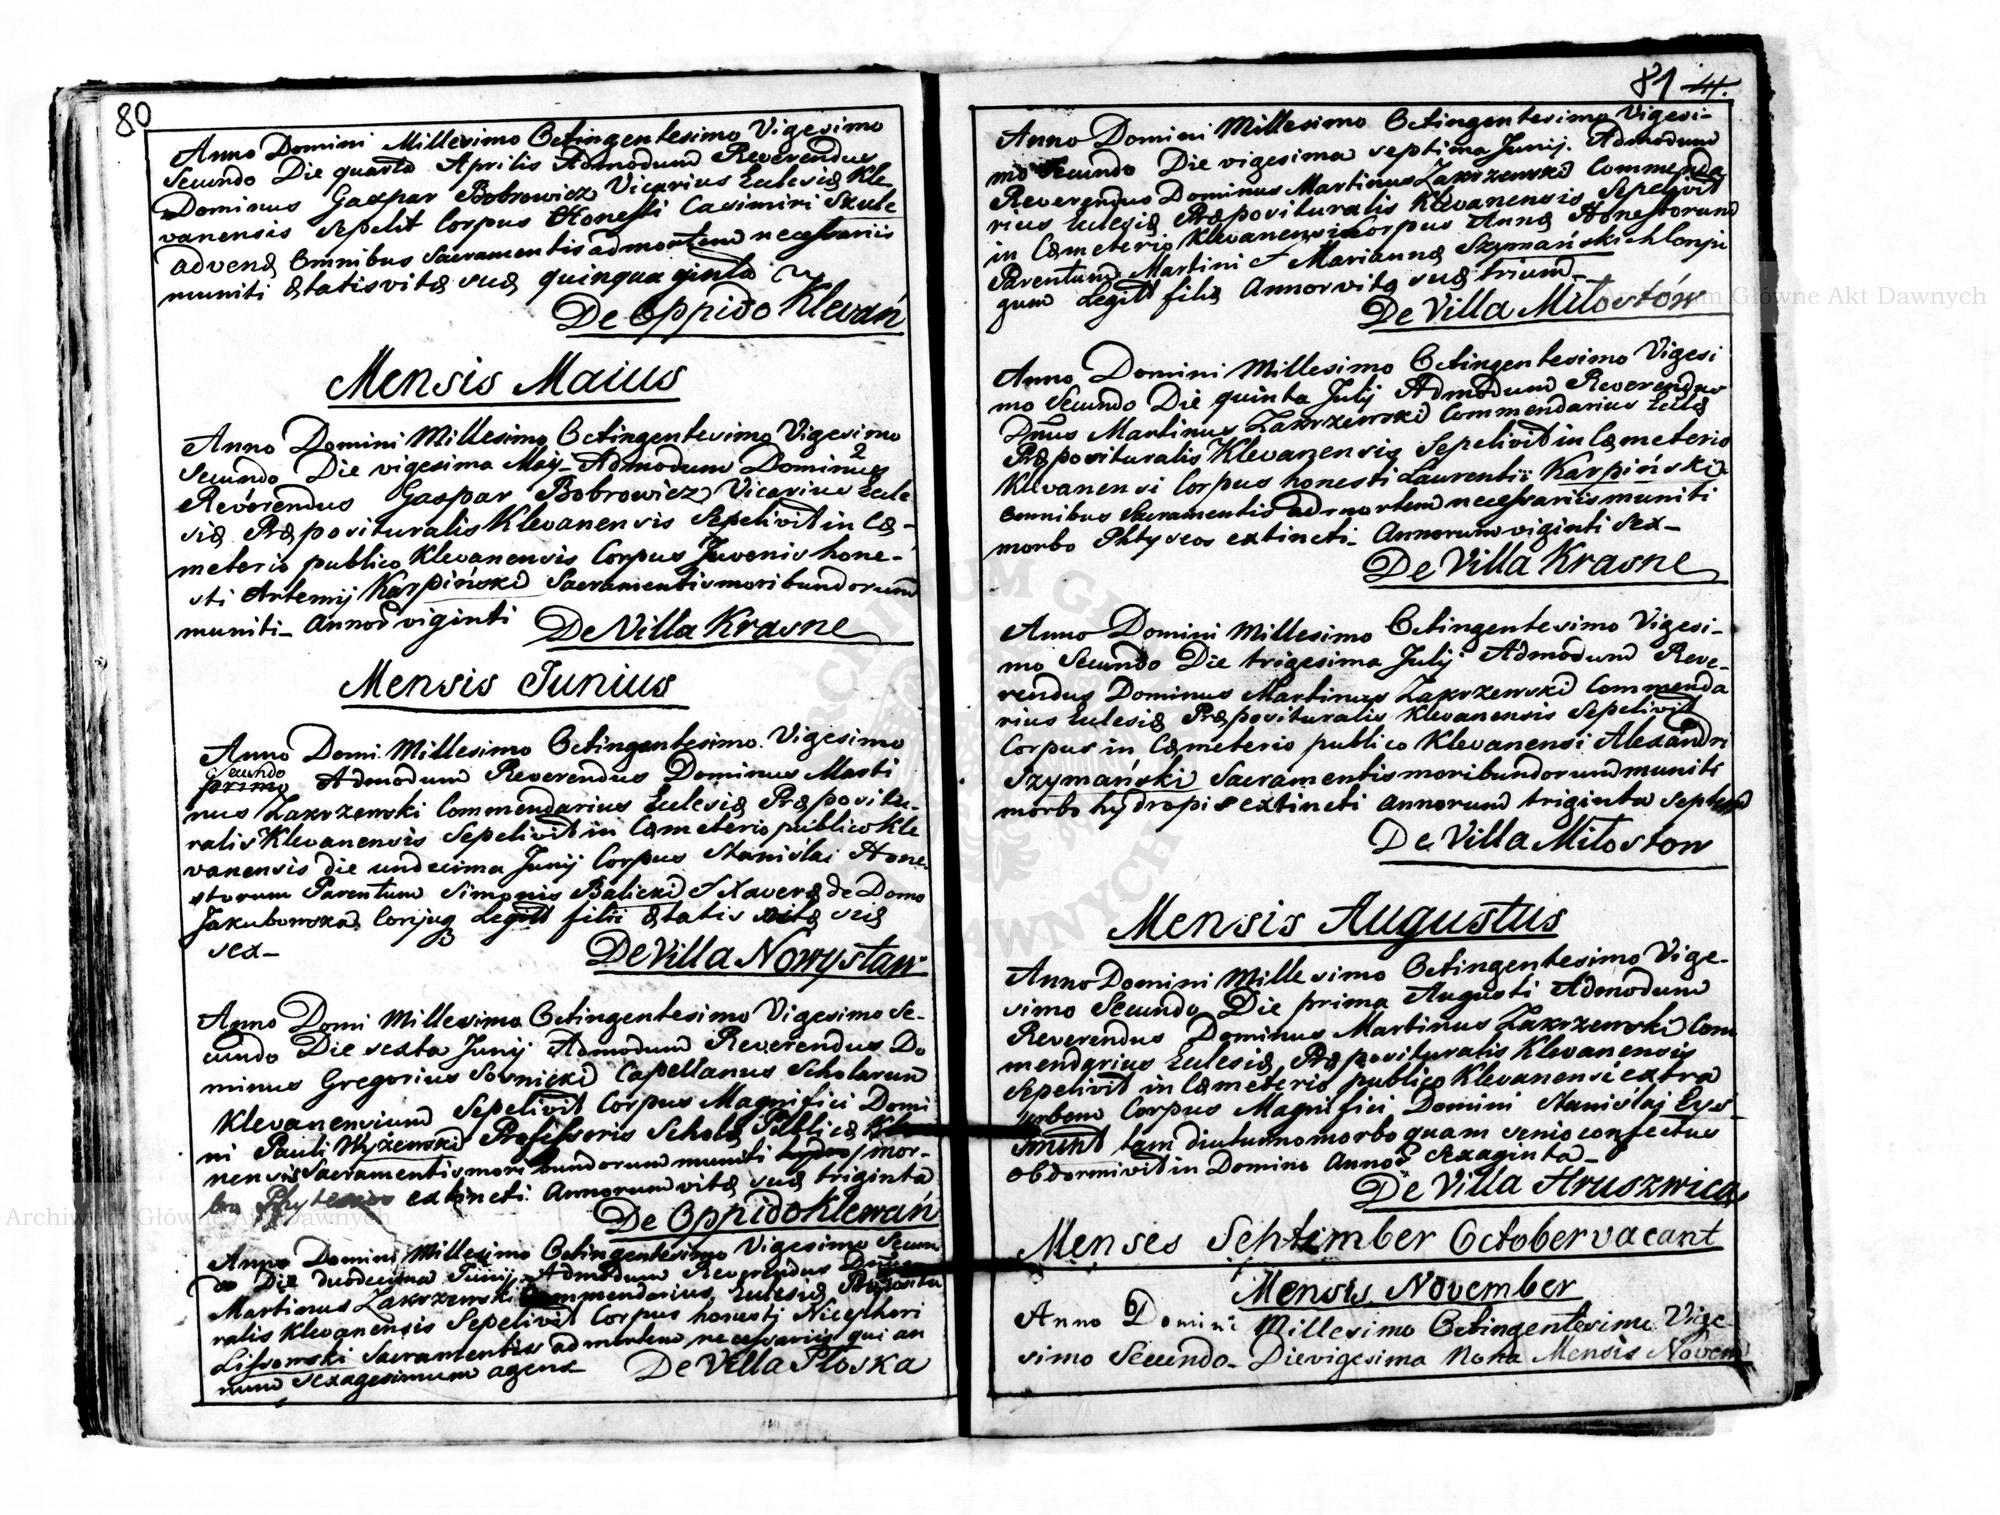 80
Anno Domini Millesimo Octingentesimo Vigesimo
Secundo Die quarta Aprilis Admodum Reverendus
Dominus Gaspar Bobrowicz Vicarius Eclesiæ Kle-
vanensis Sepelit Corpus Honesti Casimiri
advenæ Omnibus Sacramentis ad mortem necessariis
muniti ætatis vitæ suæ quinquaginta
De Oppido Klevań
Mensis Maius
Anno Domini Millesimo Octingentesimo Vigesimo
Secundo Die vigesima Maij Admodum Dominus
Reverendus Gaspar Bobrowicz Vicarius Ecle
siæ Præposituralis Klevanensis Sepelivit in Cæ-
meterio publico Klevanensis Corpus Juvenis hone-
sti Artemij Karpiński Sacramentis moribundorum
muniti - Annor viginti De Villa Krasne
Mensis Junius
Anno Domi. Millesimo Octingentesimo Vigesimo
Secundo
primo Admodum Reverendus Dominus Marti
nus Zakrzewski Commendarius Eclesiæ Præpositu-
ralis Klevanensis Sepelivit in Cæmeterio publico Kle
vanensis die undecima Junij Corpus Stanislai Hone-
storum Parentum Simonis Balicki & Xaveræ de Domo
Jakubowska Conjug Legitt filii ætatis vitæ suæ
sex -
De Villa Nowystaw
Anno Domi Millesimo Octingentesimo Vigesimo Se-
cundo Die sexta Junij Admodum Reverendus Do
minus Gregorius Sosnicki Capellanus Scholarum
Klevanensium Sepelivit Corpus Magnifici Domi
ni Pauli Wyzewski Professoris Scholæ Publicæ
nensis Sacramentis moribundorum muniti hydro mor-
bo extincti. Annorum vitæ suæ triginta
De Oppido Klewań
Anno Domini Millesimo Octingentesimo Vigesimo Secun
do Die duodecima Junij Admodum Reverendus
Martinus Zakrzewski Commendarius Eclesiæ Præpositu
ralis Klevanensis Sepelivit Corpus honesti Nicephori
Lissowski Sacramentis ad mortem necessariis qui an
num sexagesimum agens De Villa Płoska
81 44.
Anno Domini Millesimo Octingentesimo Vigesi-
mo Secundo Die vigesima septima Junij. Admodum
Reverendus Dominus Martinus Zakrzewski Commenda
rius Eclesiæ Præposituralis Klevanensis Sepelivit
in Cæmeterio Klevanensi Corpus Annæ Honestorum
Parentum Martini & Mariannæ Szymański chlonju
gum Legitt filiæ Annor vitæ suæ trium -
De Villa Miłostów
Anno Domini Millesimo Octingentesimo Vigesi
mo Secundo Die quinta Julij Admodum Reverendus
Dnus Martinus Zakrzewski Commendarius Eclæ
Præposituralis Klevanensis Sepelivit in Cæmeterio
Klevanensi Corpus honesti Laurentii Karpiński
Omnibus Sacramentis ad mortem necessariis muniti
morbo Phtyseos extincti - Annorum viginti Sex -
De Villa Krasne
Anno Domini Millesimo Octingentesimo Vigesi-
mo Secundo Die trigesima Julij Admodum Reve-
rendus Dominus Martinus Zakrzewski Commenda
rius Eclesiæ Præposituralis Klevanensis Sepelivit
Corpus in Cæmeterio publico Klevanensi Alexandri
Szymański Sacramentis moribundorum muniti
morbo hydropis extincti annorum triginta septem
De Villa Miłostow
Mensis Augustus
Anno Domini Millesimo Octingentesimo Vige-
simo Secundo Die prima Augusti Admodum
Reverendus Dominus Martinus Zakrzewski Com
mendarius Eclesiæ Præposituralis Klevanensis
Sepelivit in Cæmeterio publico Klevanensi extra
urbem Corpus Magnifici Domini Stanislaj
tam diuturno morbo quam senio confectus
obdormivit in Domino Annor sexaginta -
De Villa Hruszwica
Menses September October vacant
Mensis November
Anno Domini Millesimo Octingentesimo Vige
simo Secundo - Die vigesima Nona Mensis Novem
Archiwum Główne Akt Dawnych
Archiwum Główne Akt Dawnych
ARCHIWUM GŁÓWNE AKT DAWNYCH